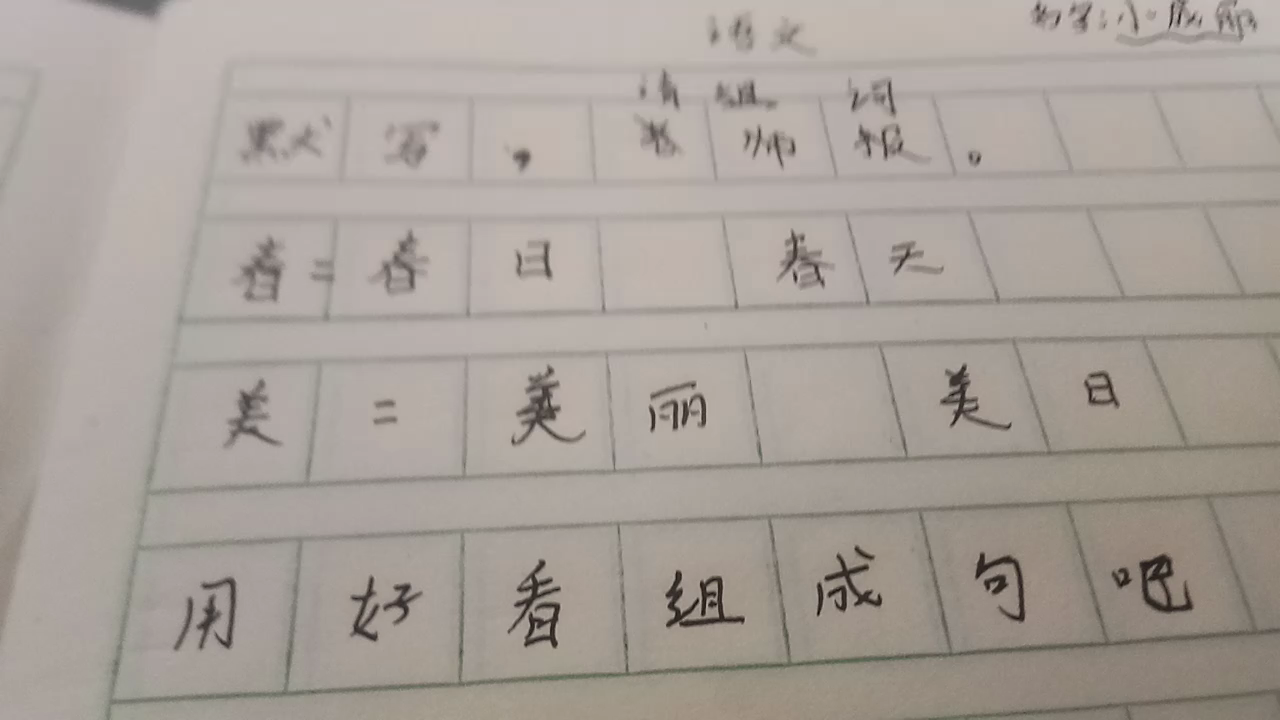 语文
请组词
默写，老师报。
春=春日 春天
美=美丽 美日
用好看组成句吧